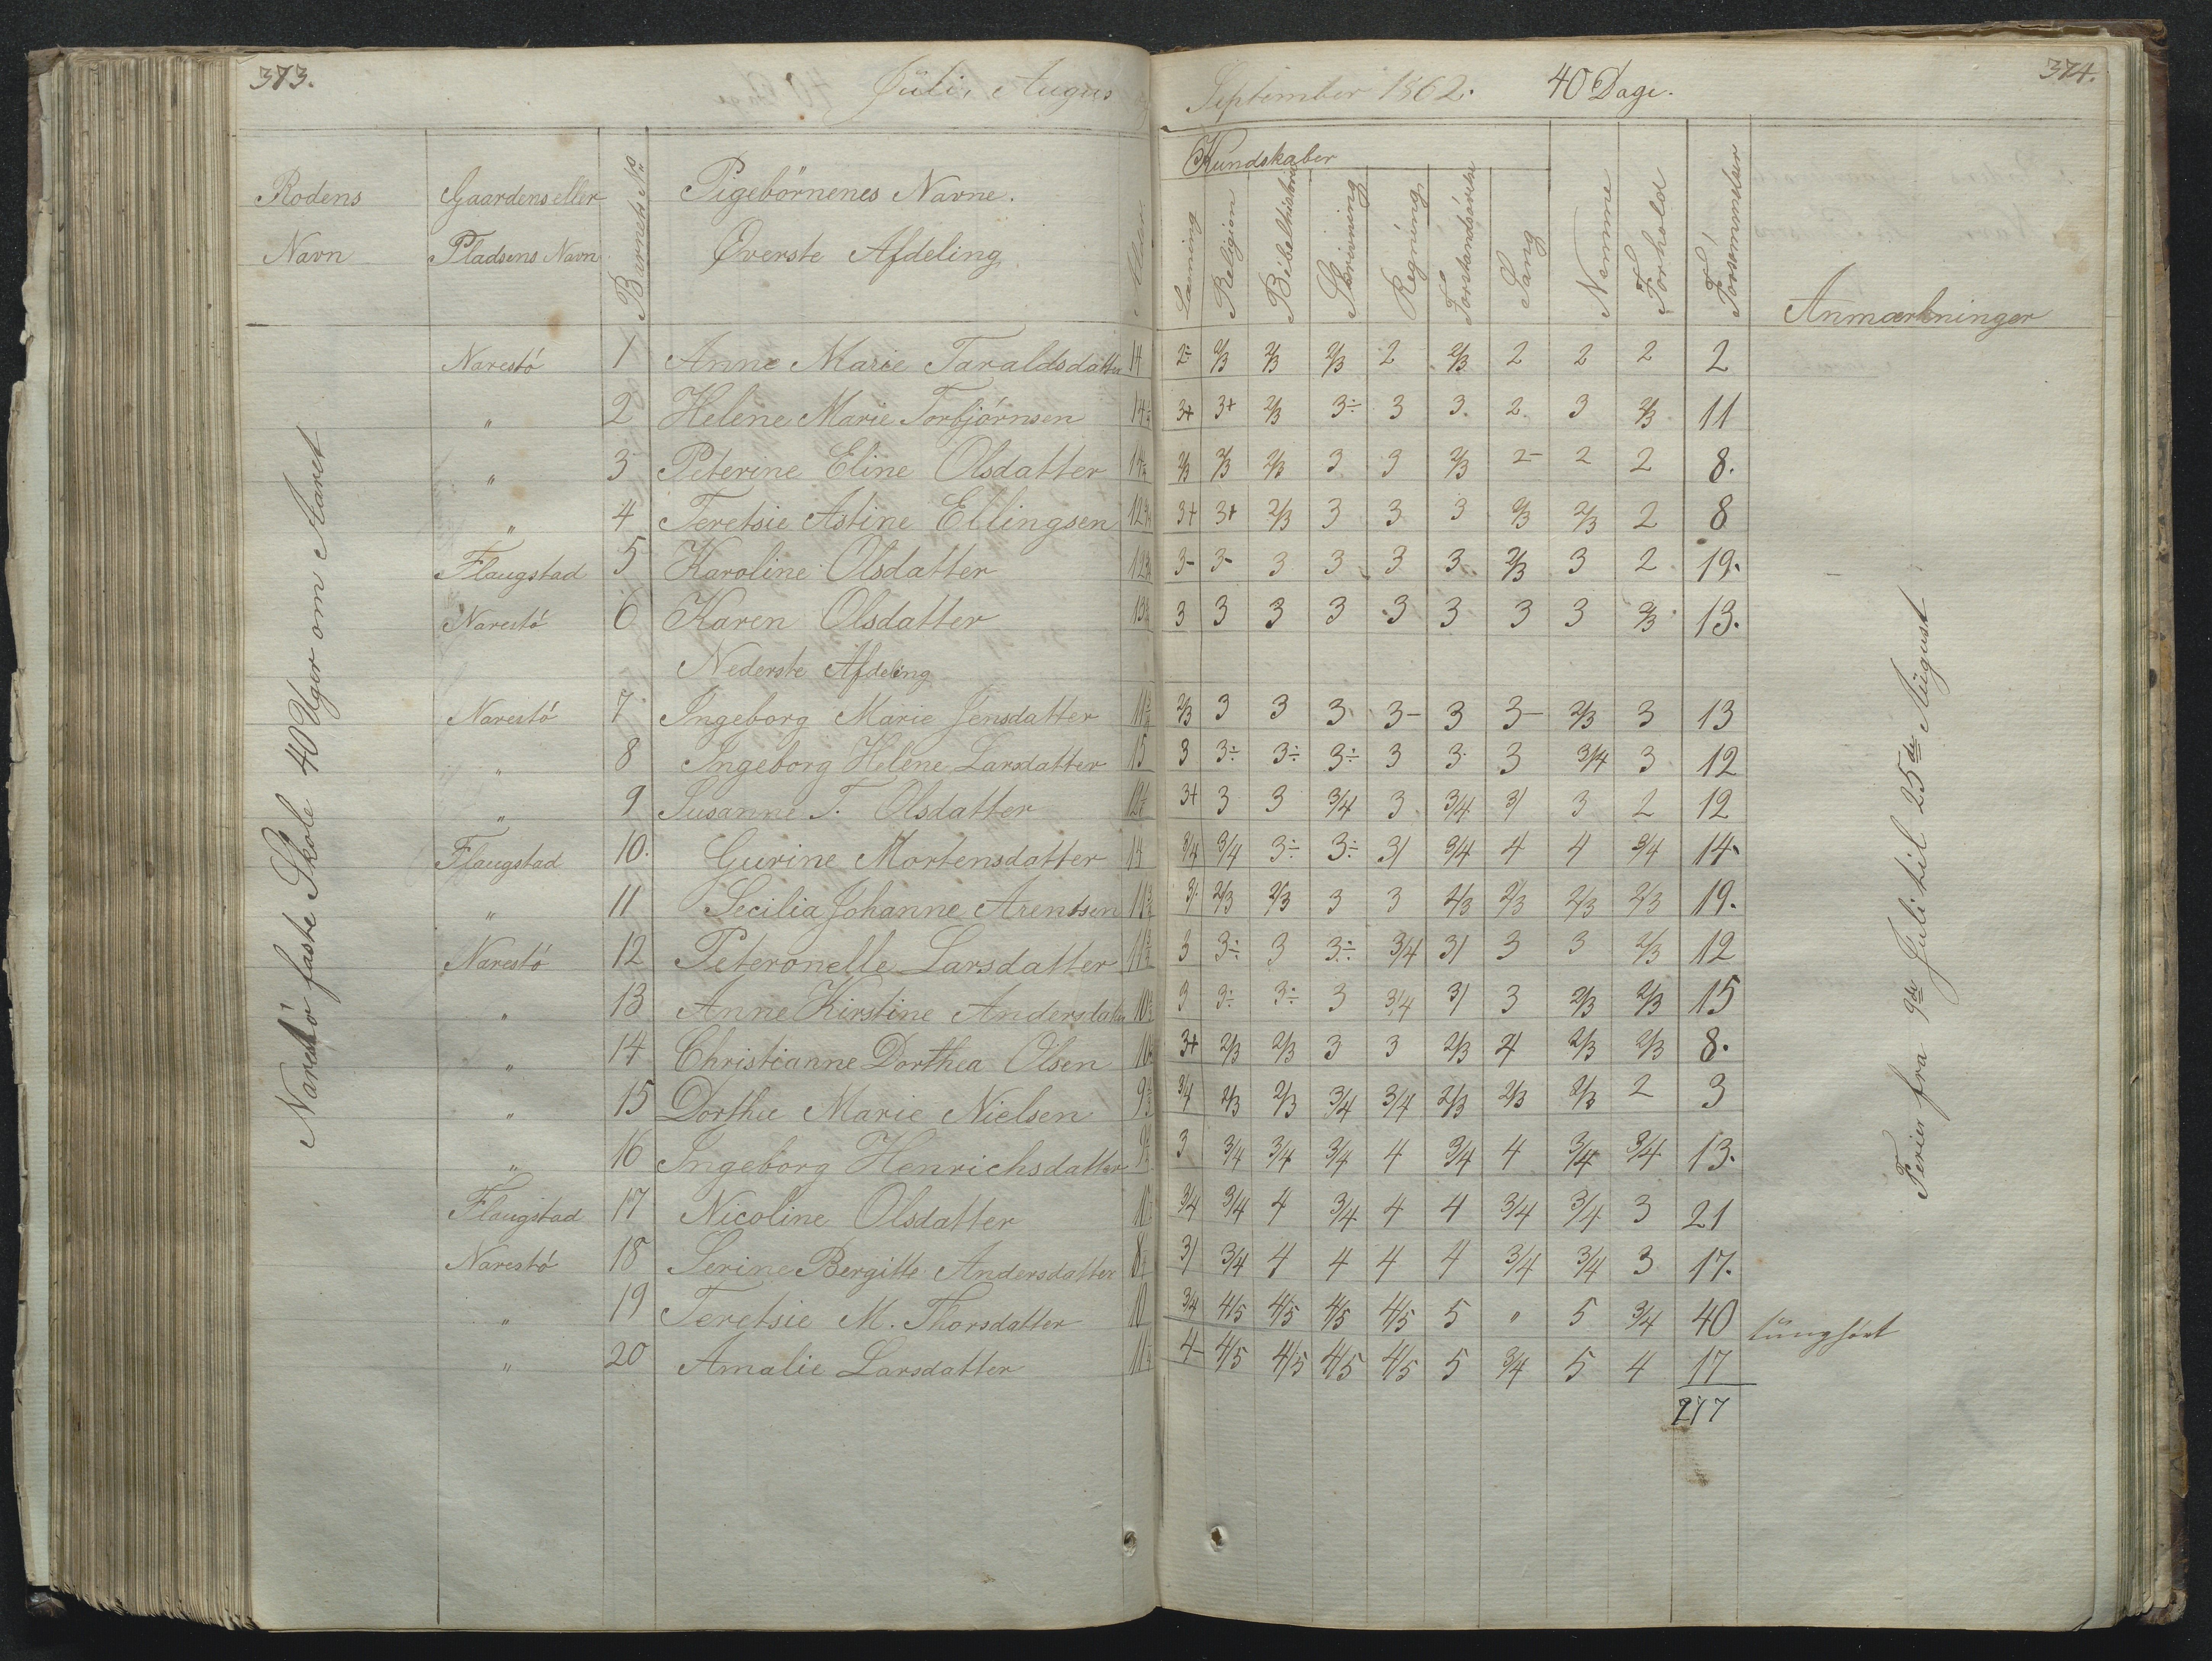 373.
Juli, Augus
September 1862. 40 Dage.
374.
Rodens Navn
Gaardens eller Pladsens Navn
Barnets No
Pigebörnenes Navne.
Överste Afdeling
Alder
Kundskaber
Læsning
Religion
Bibelhistorie
Skrivning
Regning
Forstandsøvelse
Sang
Nemme
Forhold
Forsømmelser
Anmærkninger
Narestö faste Skole 40 Uger om Aaret
Narestö 1 Anne Marie Taraldsdatter 14 2- 2/3 2/3 2/3 2 2/3 2 2 2 2
" 2 Helene Marie Torbjörnsen 3+ 3+ 2/3 3÷ 3 3 2 3 2/3 11
" 3 Peterine Eline Olsdatter 2/3 2/3 2/3 3 3 2/3 2- 2 2 8.
" 4 Teretsie Astine Ellingsen 3+ 3+ 2/3 3 3 3 2/3 2/3 2 8
Flaugstad 5 Karoline Olsdatter 3- 3- 3 3 3 3 2/3 3 2 19.
Narestö 6 Karen Olsdatter 3 3 3 3 3 3 3 3 2/3 13.
Nederste Afdeling
Narestö 7 Ingeborg Marie Jensdatter 2/3 3 3 3 3- 3 3- 2/3 3 13
" 8 Ingeborg Helene Larsdatter 15 3 3÷ 3÷ 3÷ 3 3 3 3/4 3 12
" 9 Susanne T. Olsdatter 3+ 3 3 3/4 3 3/4 3/ 3 2 12
Flaugstad 10. Gurine Mortensdatter 14 3/4 3/4 3÷ 3÷ 3/ 3/4 4 4 3/4 14.
" 11 Secilia Johanne Arentsen 3/ 2/3 2/3 3 3 2/3 2/3 2/3 2/3 19.
Narestö 12 Peteronelle Larsdatter 3 3÷ 3 3÷ 3/4 3/ 3 3 2/3 12
" 13 Anne Kirstine Andersdatter 3 3÷ 3÷ 3 3/4 3/ 3 2/3 2/3 15
" 14 Christianne Dorthea Olsen 3+ 2/3 2/3 3 3 2/3 4 2/3 2/3 8.
" 15 Dorthe Marie Nielsen 3/4 2/3 2/3 3/4 3/4 2/3 2/3 2/3 2 3
" 16 Ingeborg Henrichsdatter 3 3/4 3/4 3/4 4 3/4 4 3/4 3/4 13.
Flaugstad 17 Nicoline Olsdatter 3/4 3/4 4 3/4 4 4 3/4 3/4 3 21
Narestö 18 Serine Bergitte Andersdatter 3/ 3/4 4 4 4 4 3/4 3/4 3 17.
" 19 Teretsie M. Thorsdatter 10 3/4 4/5 4/5 4/5 4/5 5 " 5 3/4 40 tunghört
" 20 Amalie Larsdatter 4- 4/5 4/5 4/5 4/5 5 3/4 5 4 17
277
Ferier fra 9de Juli til 25de August